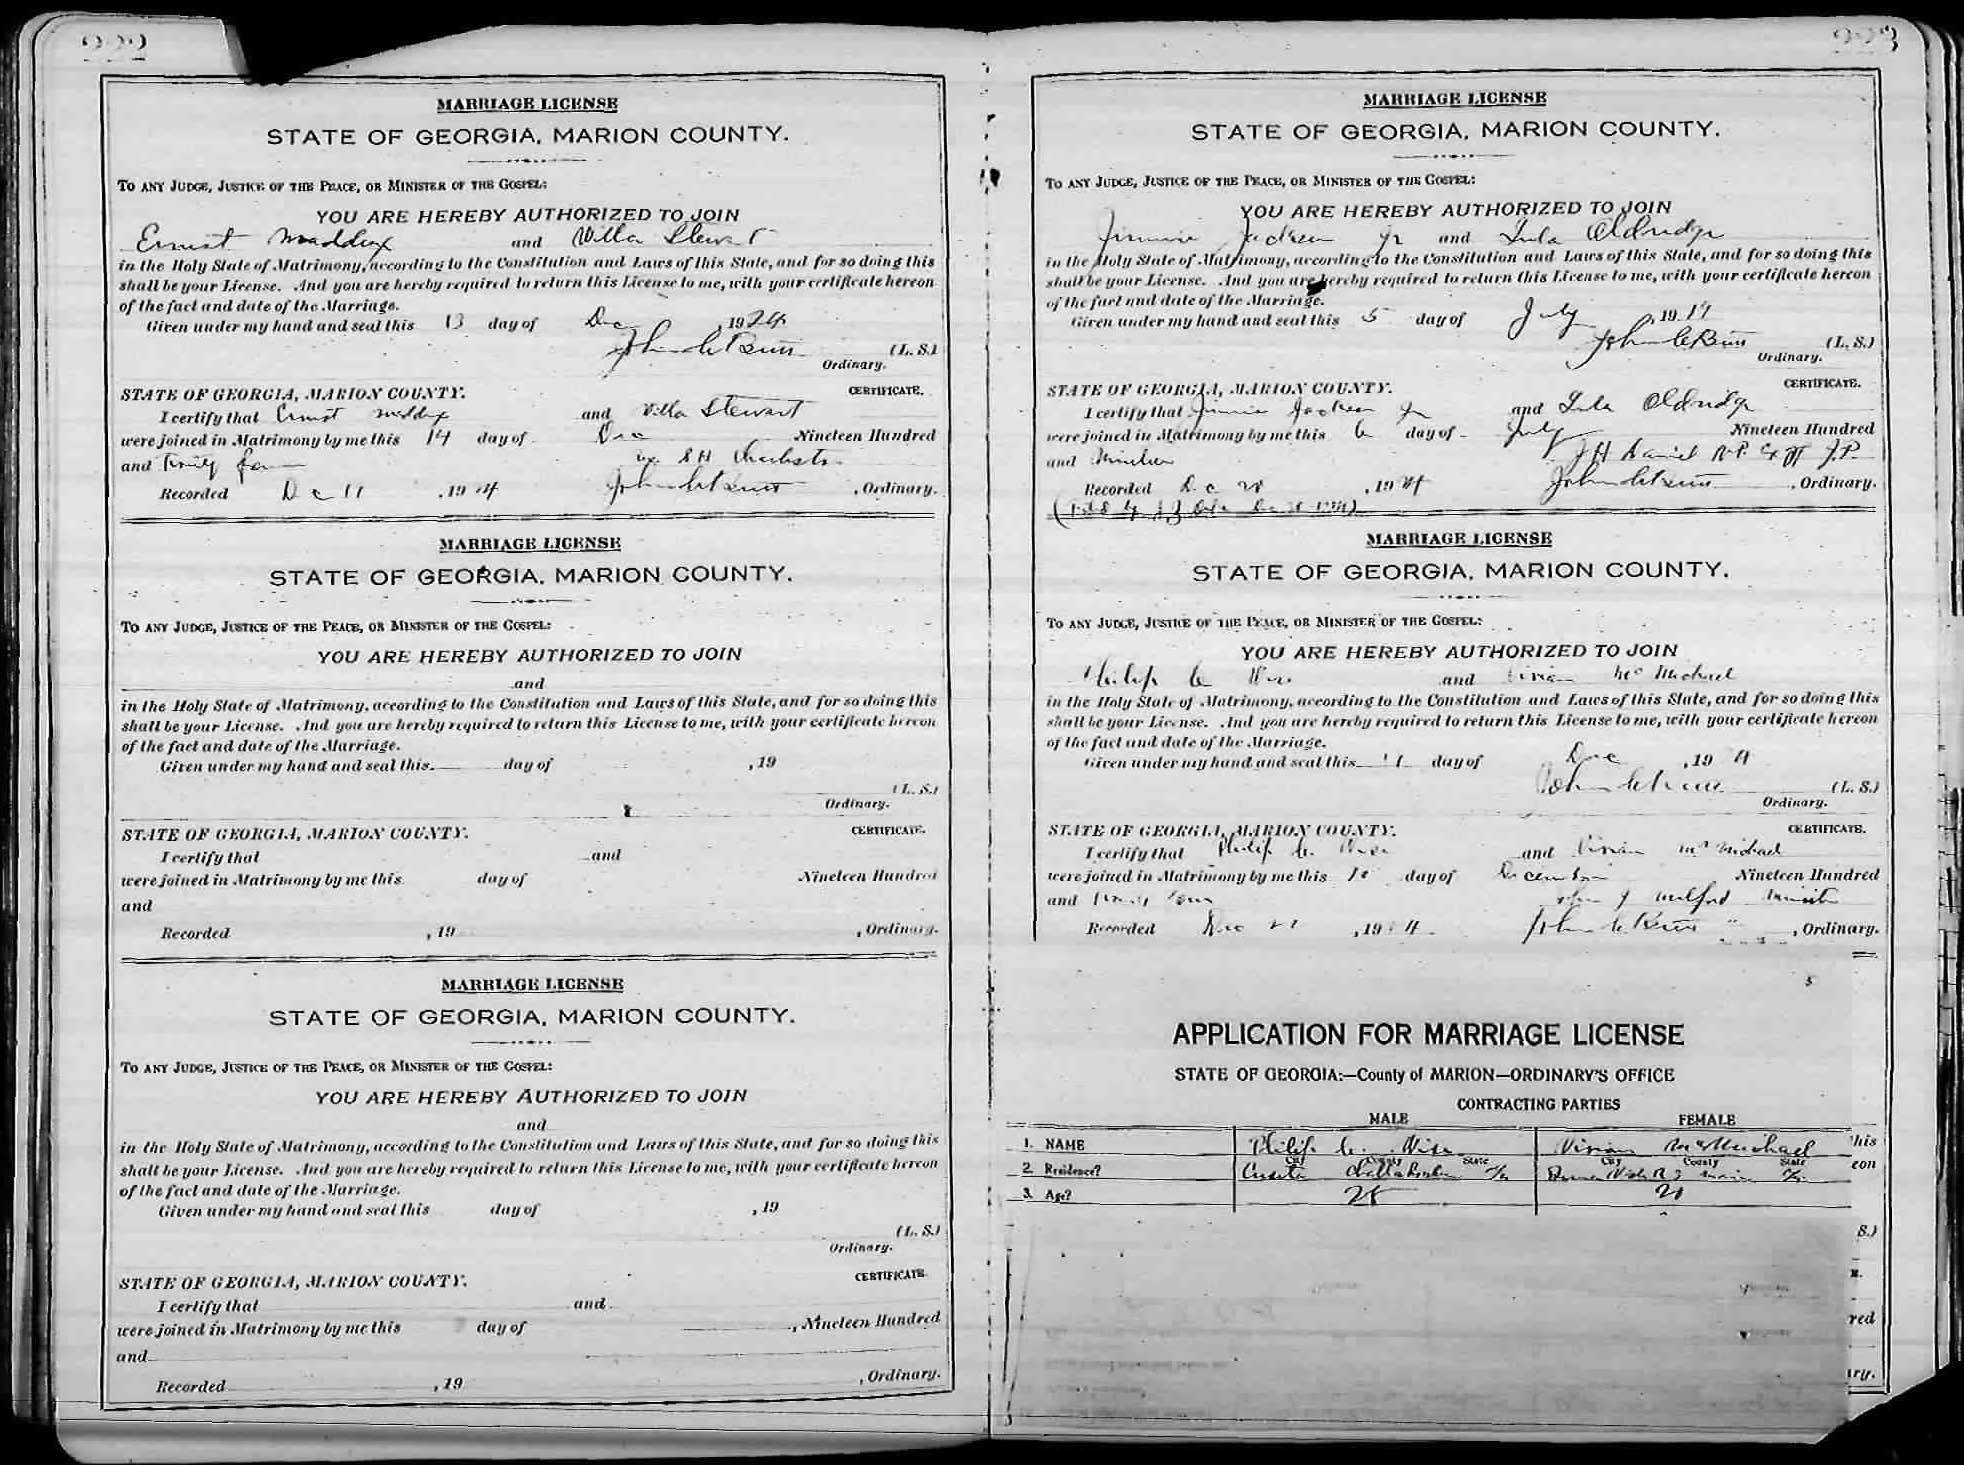 222
MARRIAGE LICENSE
STATE OF GEORGIA, MARION COUNTY.
TO ANY JUDGE, JUSTICE OF THE PEACE, OR MINISTER OF THE GOSPEL:
YOU ARE HEREBY AUTHORIZED TO JOIN
Ernest Maddux and Willa Stewart
in the Holy State of Matrimony, according to the Constitution and Laws of this State, and for so doing this
shall be your License. And you are hereby required to return this License to me, with your certificate hereon
of the fact and date of the Marriage.
Given under my hand and seal this 13 day of Dec, 1924
John C Butt (L. S.)
Ordinary.
STATE OF GEORGIA, MARION COUNTY. CERTIFICATE.
I certify that Ernest Maddux and Willa Stewart
were joined in Matrimony by me this 14 day of Dec Nineteen Hundred
and twenty four
Recorded Dec, 1924 John C Butt, Ordinary.
MARRIAGE LICENSE
STATE OF GEORGIA, MARION COUNTY.
TO ANY JUDGE, JUSTICE OF THE PEACE, OR MINISTER OF THE GOSPEL:
YOU ARE HEREBY AUTHORIZED TO JOIN
and
in the Holy State of Matrimony, according to the Constitution and Laws of this State, and for so doing this
shall be your License. And you are hereby required to return this License to me, with your certificate hereon
of the fact and date of the Marriage.
Given under my hand and seal this day of , 19
(L. S.)
Ordinary.
STATE OF GEORGIA, MARION COUNTY. CERTIFICATE.
I certify that and
were joined in Matrimony by me this day of Nineteen Hundred
and
Recorded , 19 , Ordinary.
MARRIAGE LICENSE
STATE OF GEORGIA, MARION COUNTY.
TO ANY JUDGE, JUSTICE OF THE PEACE, OR MINISTER OF THE GOSPEL:
YOU ARE HEREBY AUTHORIZED TO JOIN
and
in the Holy State of Matrimony, according to the Constitution and Laws of this State, and for so doing this
shall be your License. And you are hereby required to return this License to me, with your certificate hereon
of the fact and date of the Marriage.
Given under my hand and seal this day of , 19
(L. S.)
Ordinary.
STATE OF GEORGIA, MARION COUNTY. CERTIFICATE.
I certify that and
were joined in Matrimony by me this day of , Nineteen Hundred
and
Recorded , 19 , Ordinary.
223
MARRIAGE LICENSE
STATE OF GEORGIA, MARION COUNTY.
TO ANY JUDGE, JUSTICE OF THE PEACE, OR MINISTER OF THE GOSPEL:
YOU ARE HEREBY AUTHORIZED TO JOIN
Jimmie Jackson Jr and Lula Aldridge
in the Holy State of Matrimony, according to the Constitution and Laws of this State, and for so doing this
shall be your License. And you are hereby required to return this License to me, with your certificate hereon
of the fact and date of the Marriage.
Given under my hand and seal this 5 day of July, 1919
John C Butt (L. S.)
Ordinary.
STATE OF GEORGIA, MARION COUNTY. CERTIFICATE.
I certify that Jimmie Jackson Jr and Lula Aldridge
were joined in Matrimony by me this 6 day of July Nineteen Hundred
and Nineteen J H Daniel N.P. & Ex off J.P.
Recorded Dec, 1924 John C Butt, Ordinary.
MARRIAGE LICENSE
STATE OF GEORGIA, MARION COUNTY.
TO ANY JUDGE, JUSTICE OF THE PEACE, OR MINISTER OF THE GOSPEL:
YOU ARE HEREBY AUTHORIZED TO JOIN
Philip C Wise and Vivian McMichael
in the Holy State of Matrimony, according to the Constitution and Laws of this State, and for so doing this
shall be your License. And you are hereby required to return this License to me, with your certificate hereon
of the fact and date of the Marriage.
Given under my hand and seal this day of Dec, 1924
John C Butt (L. S.)
Ordinary.
STATE OF GEORGIA, MARION COUNTY. CERTIFICATE.
I certify that Philip C. Wise and Vivian McMichael
were joined in Matrimony by me this day of December Nineteen Hundred
and twenty four John J Milford Minister
Recorded Dec, 1924. John C Butt, Ordinary.
APPLICATION FOR MARRIAGE LICENSE
STATE OF GEORGIA:—County of MARION—ORDINARY'S OFFICE
CONTRACTING PARTIES
MALE FEMALE
1. NAME Philip C. Wise Vivian McMichael his
City County State City County State
2. Residence? Cusseta Chattahoochee Ga Marion Ga con
3. Age? 25
S.)
red
ry.